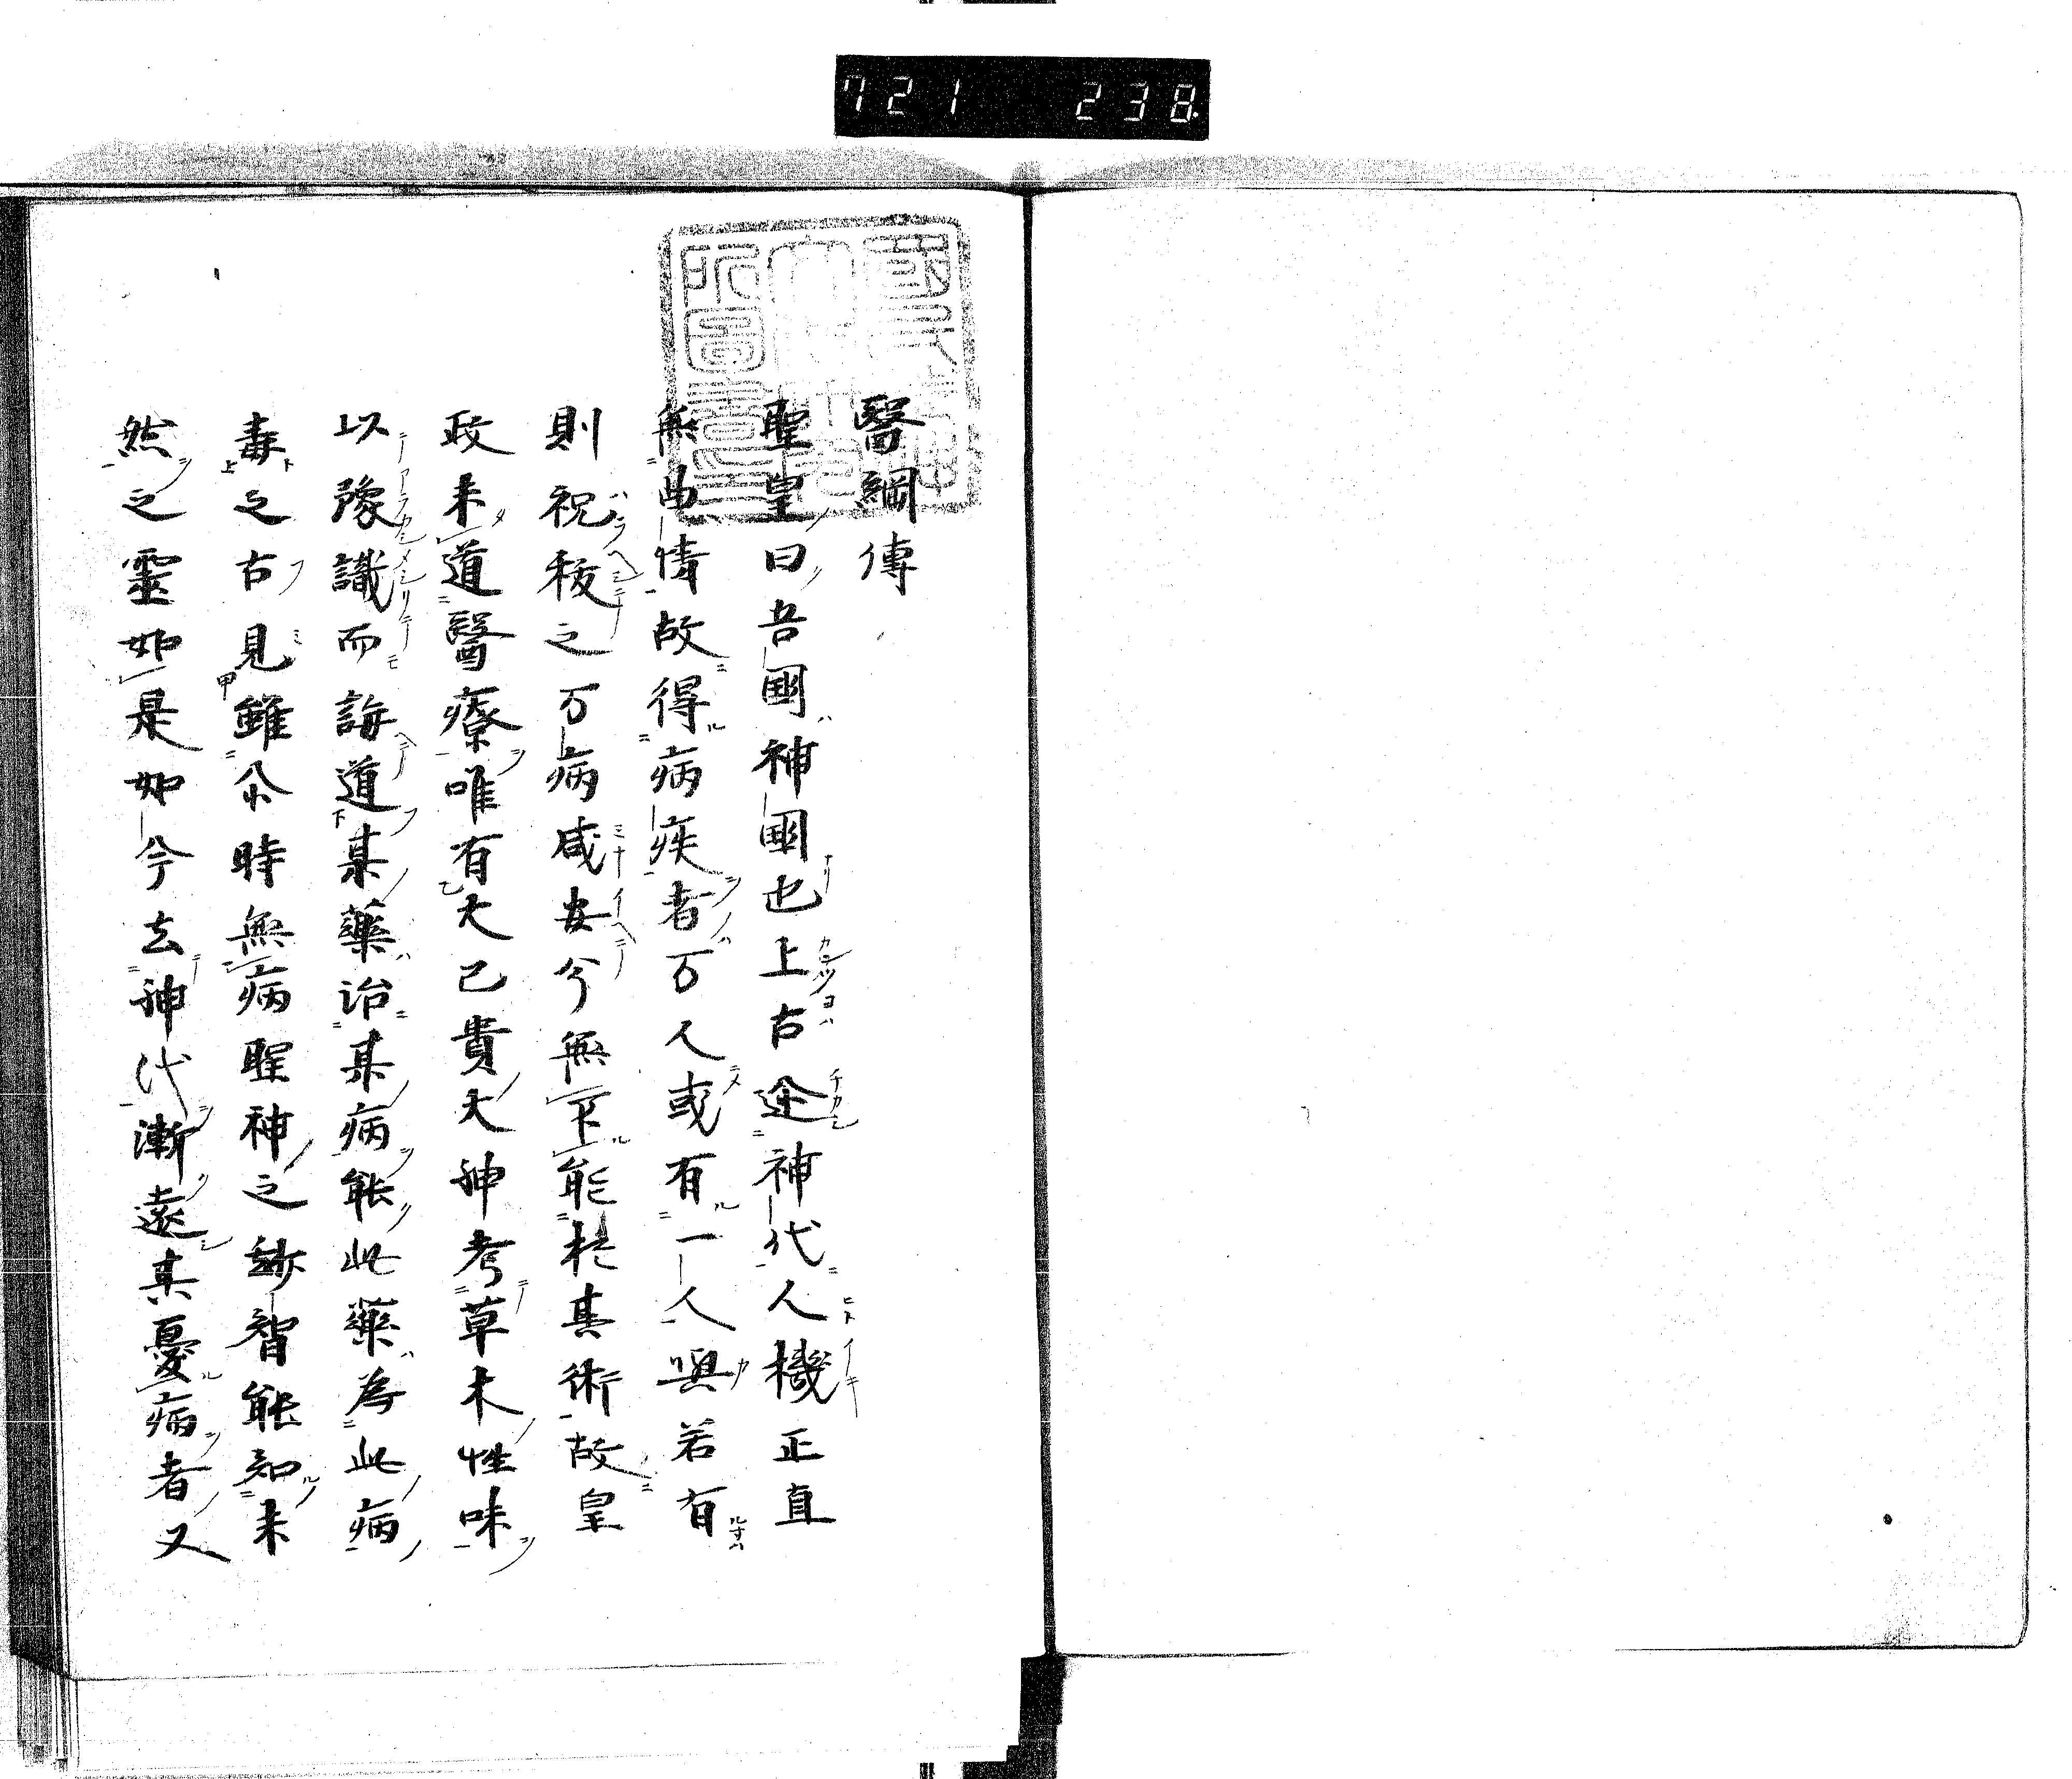 721 238
醫綱傳
聖皇曰吾國神國也上古近神代人機正直
無曲情故得病疾者万人或有一人與若有
則祝秡之万病咸安今無下能於其術故皇
政未道醫療唯有大己貴大神考草木性味
以豫識而誨道某藥治某病能此藥為此病
毒之古見雖尒時無病聖神之妙智能知未
然之靈如是如今去神代漸遠其憂病者又